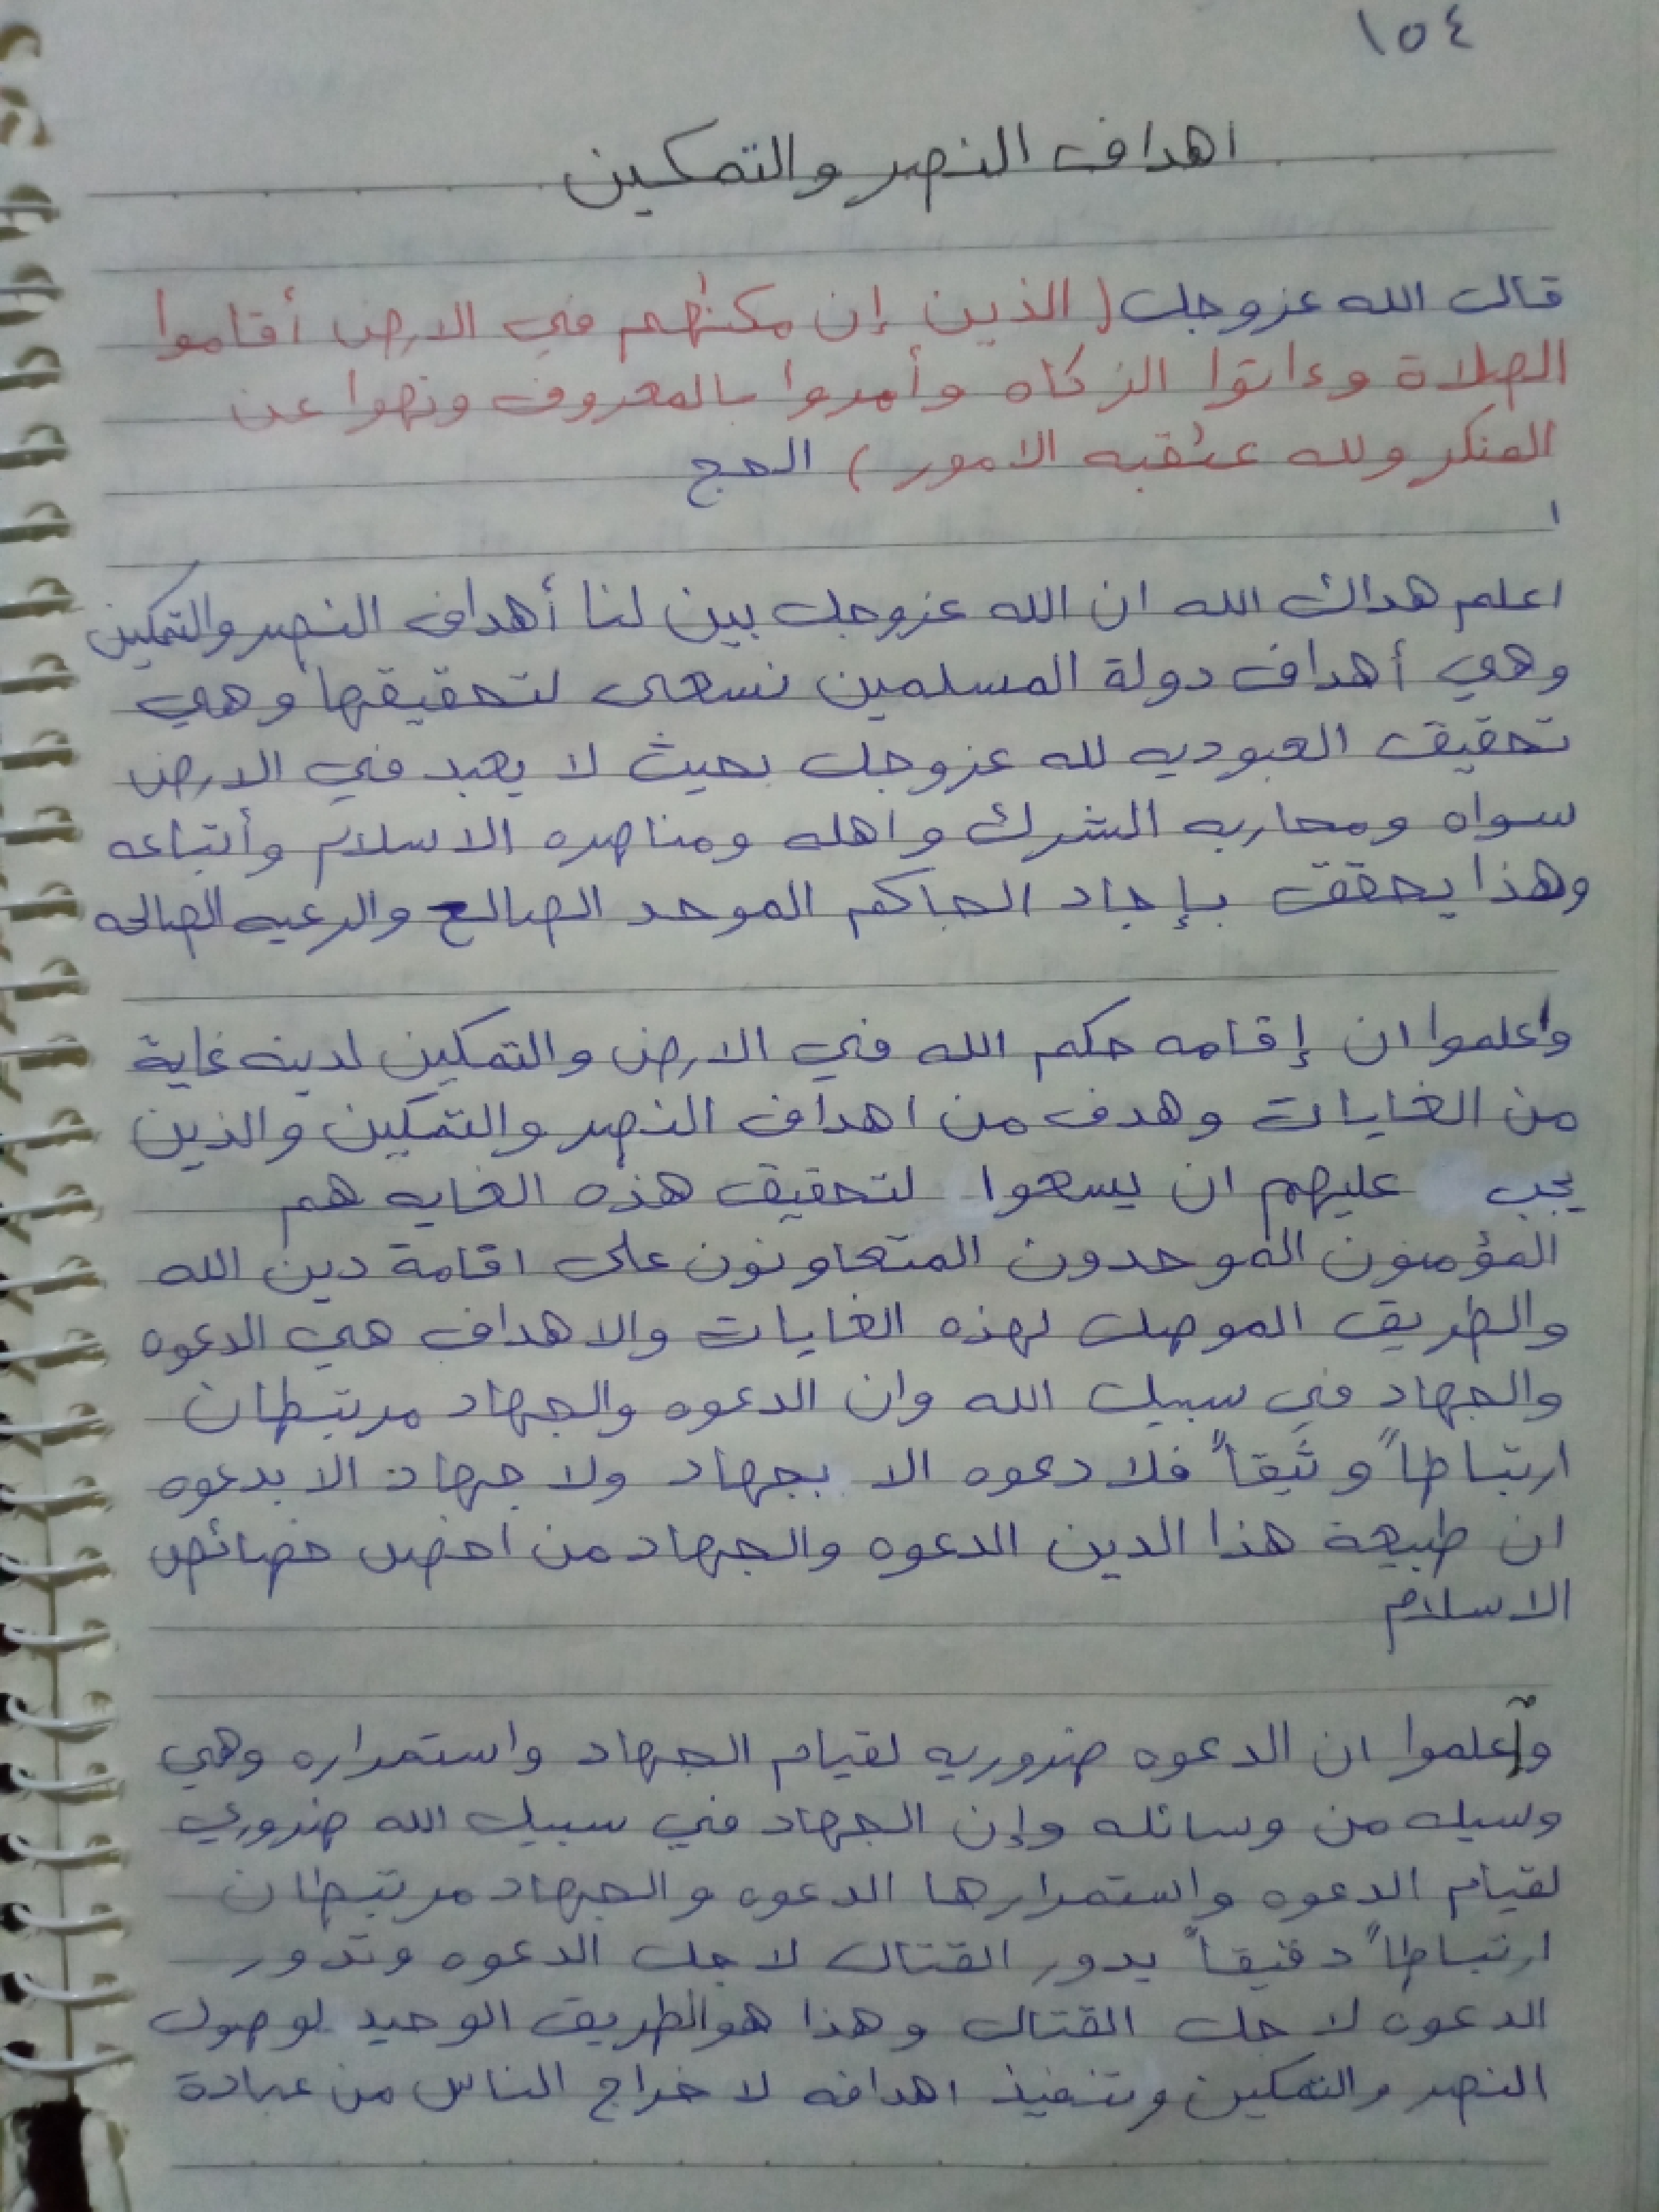 ١٥٤
اهداف النصر والتمكين
قال الله عزوجل ( الذين إن مكنٰهم في الارض أقاموا
الصلاة وءاتوا الزكاه وأمروا بالمعروف ونهوا عن
المنكر ولله عٰقبه الامور ) الحج
ا
اعلم هداك الله ان الله عزوجل بين لنا أهداف النصر والتمكين
وهي أهداف دولة المسلمين نسعى لتحقيقها وهي
تحقيق العبوديه لله عزوجل بحيث لا يعبد في الارض
سواه ومحاربه الشرك واهله ومناصره الاسلام وأتباعه
وهذا يحقق بإجاد الحاكم الموحد الصالح والرعيه الصالحه
واعلموا ان إقامه حكم الله في الارض والتمكين لدينه غاية
من الغايات وهدف من اهداف النصر والتمكين والذين
يجب عليهم ان يسعوا لتحقيق هذه الغايه هم
المؤمنون الموحدون المتعاونون على اقامة دين الله
والطريق الموصل لهذه الغايات والاهداف هي الدعوه
والجهاد في سبيل الله وان الدعوه والجهاد مرتبطان
ارتباطاً وثيقاً فلا دعوه الا بجهاد ولا جهاد الا بدعوه
ان طبيعة هذا الدين الدعوه والجهاد من اخص خصائص
الاسلام
وأعلموا ان الدعوه ضروريه لقيام الجهاد واستمراره وهي
وسيله من وسائله وإن الجهاد في سبيل الله ضروري
لقيام الدعوه واستمرارها الدعوه والجهاد مرتبطان
ارتباطاً دقيقاً يدور القتال لاجل الدعوه وتدور
الدعوه لاجل القتال وهذا هو الطريق الوحيد لوصول
النصر والتمكين وتنفيذ اهدافه لاخراج الناس من عبادة